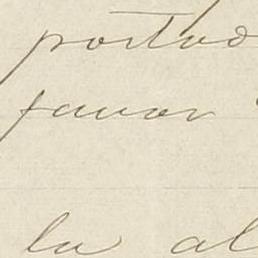 portad
favor
la al